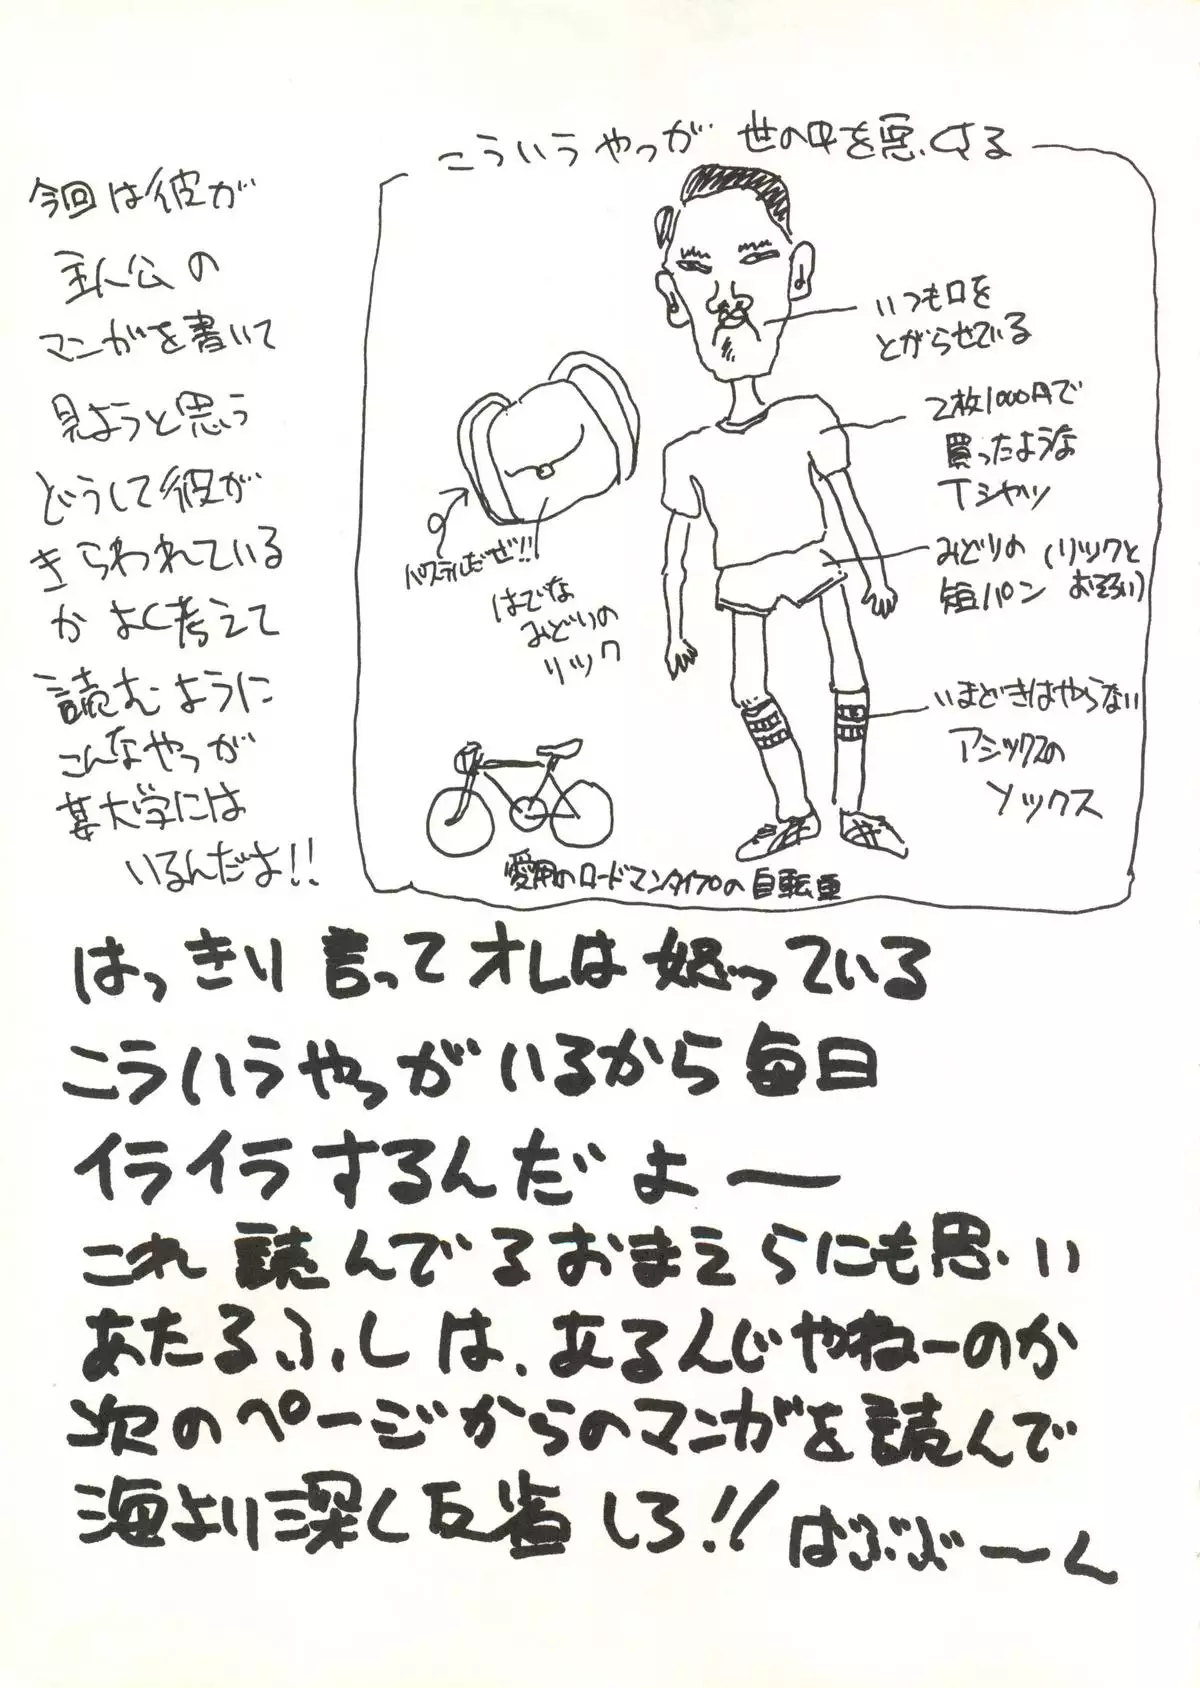 こういうやつが 世の中を悪くする
今回は彼が
主人公の
マンガを書いて
見ようと思う
どうして彼が
きらわれている
か よく考えて
読むように
こんなやつが
某大学には
いるんだよ!!
いつも口を
とがらせている
2枚1000円で
買ったような
Tシャツ
みどりの
短パン
(リックと
おそろい)
いまどきはやらない
アシックスの
ソックス
パステルだぜ!!
はでな
みどりの
リック
愛用のロードマンタイプの自転車
はっきり言ってオレは怒っている
こういうやつがいるから毎日
イライラするんだよー
これ読んでるおまえらにも思い
あたるふしは、あるんじゃねーのか
次のページからのマンガを読んで
海より深く反省しろ!! ばぶぶーん